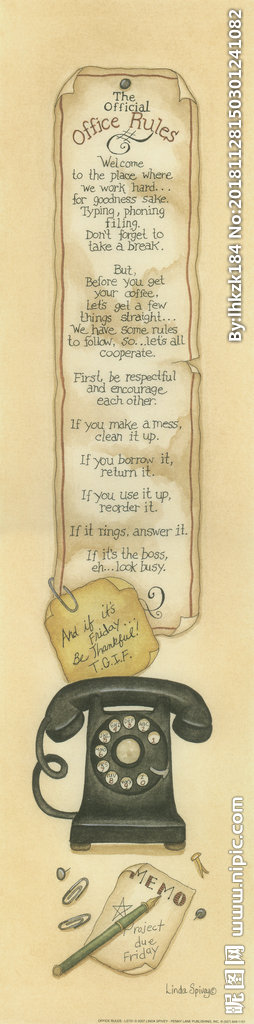 The
Official
Office Rules
Welcome
to the place where
we work hard...
for goodness sake.
Typing, phoning
filing.
Don't forget to
take a break.
But,
Before you get
your coffee,
Let's get a few
things straight...
We have some rules
to follow, so...lets all
cooperate.
First, be respectful
and encourage
each other.
If you make a mess,
clean it up.
If you borrow it,
return it.
If you use it up,
reorder it.
If it rings, answer it.
If it's the boss,
eh...look busy.
And if it's
Friday...
Be Thankful!
T.G.I.F.
MEMO
Project
due
Friday
Linda Spivey©
By:lhkzk184 No:20181128150301241082
昵图网 www.nipic.com